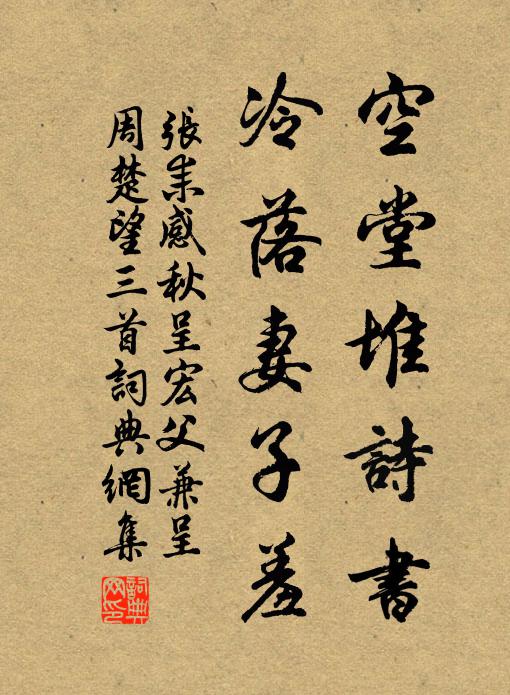 空堂堆詩書
冷落妻子羞
張耒感秋呈宏父兼呈
周楚望三首詞典網集
詞典网印